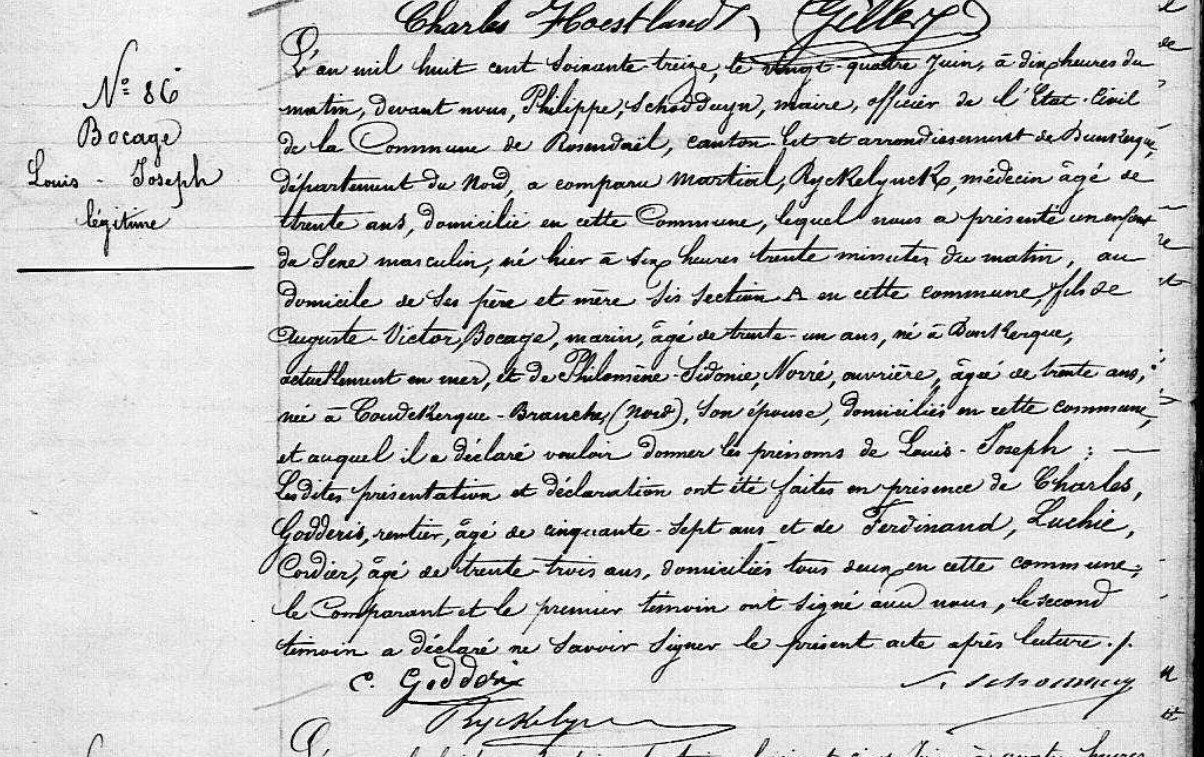 Charles Hoestlandt Gillery
N° 86
Bocage
Louis - Joseph
légitime
L'an mil huit cent soixante-treize, le vingt-quatre Juin, à dix heures du
matin, devant nous, Philippe, Schodduyn, maire, officier de l'Etat-Civil
de la Commune de Rosendaël, canton Est et arrondissement de Dunkerque,
département du Nord, a comparu Martial, Ryckelynck, médecin âgé de
trente ans, domicilié en cette Commune, lequel nous a présenté un enfant
du Sexe masculin, né hier à six heures trente minutes du matin, au
domicile de ses père et mère sis section A en cette commune, fils de
Auguste-Victor, Bocage, marin, âgé de trente-un ans, né à Dunkerque,
actuellement en mer, et de Philomène-Sidonie, Norré, ouvrière, âgée de trente ans,
née à Coudekerque-Branche, (Nord), son épouse, domiciliés en cette commune,
et auquel il a déclaré vouloir donner les prénoms de Louis-Joseph ; —
Lesdites présentation et déclaration ont été faites en présence de Charles,
Godderis, rentier, âgé de cinquante-sept ans et de Ferdinand, Luchie,
Cordier, âgé de trente-trois ans, domiciliés tous deux en cette commune ;
le Comparant et le premier témoin ont signé avec nous, le second
témoin a déclaré ne savoir signer le présent acte après lecture ./.
C. Godderis
Ryckelynck